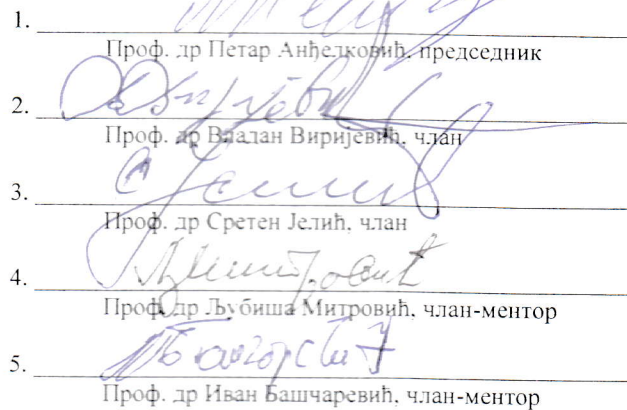 1.
Проф. др Петар Анђелковић, председник
2.
Проф. др Владан Виријевић, члан
3.
Проф. др Сретен Јелић, члан
4.
Проф. др Љубиша Митровић, члан-ментор
5.
Проф. др Иван Башчаревић, члан-ментор